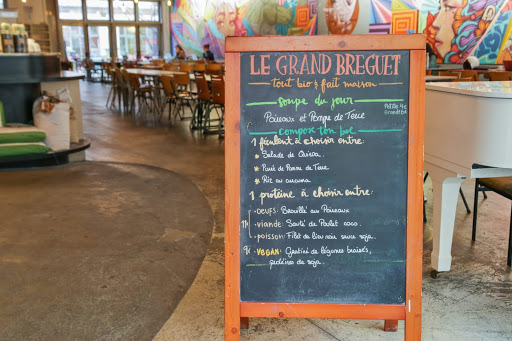 LE GRAND BREGUET
tout bio & fait maison
soupe du jour
Petite 4€
Poireaux et Pomme de Terre
compose ton bol
1 féculent à choisir entre:
* Salade de Quinoa.
* Purée de Pomme de Terre
* Riz au curcuma
1 protéine à choisir entre:
OEUFS: Brouillé aux Poireaux
VIANDE: Sauté de Poulet coco.
POISSON: Filet de lieu noir sauce soja.
9€ VEGAN: Gratiné de légumes braisés,
protéines de soja.